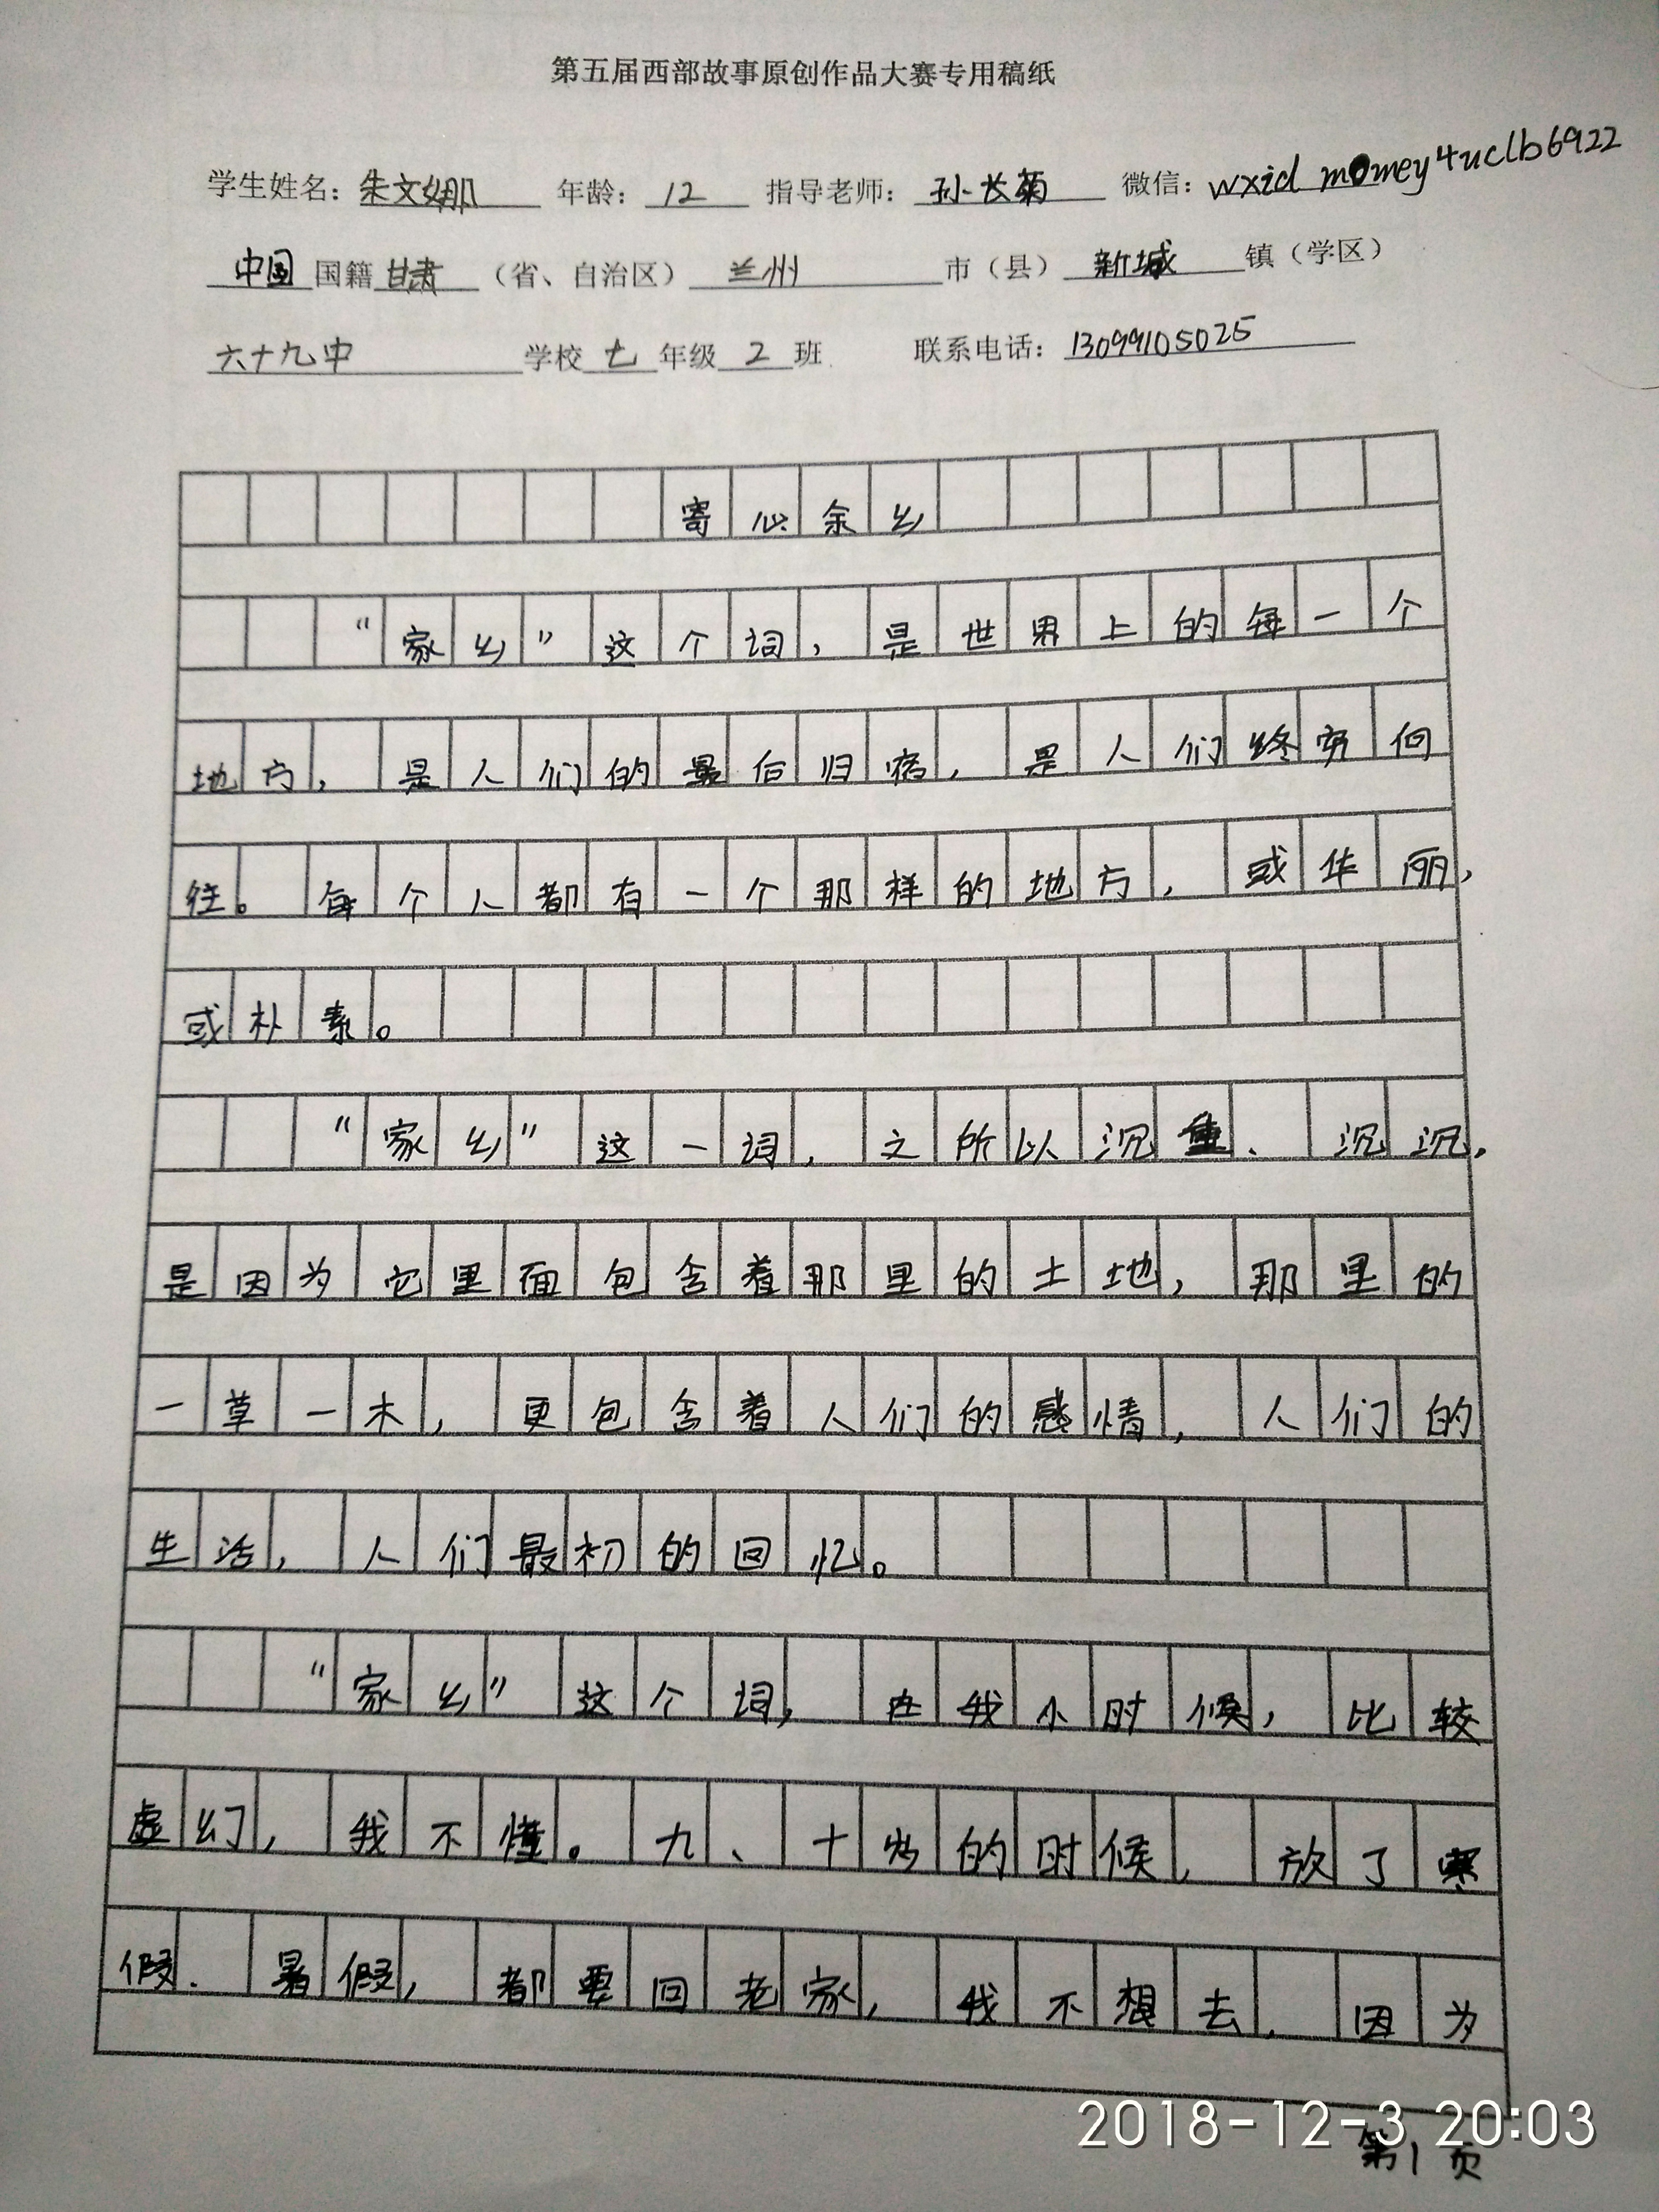 第五届西部故事原创作品大赛专用稿纸
学生姓名：朱文娜 年龄：12 指导老师：孙长菊 微信：wxid momey4uclb6922
中国国籍甘肃（省、自治区）兰州市（县）新城镇（学区）
六十九中学校七年级2班 联系电话：13099105025
寄心余乡
“家乡”这个词，是世界上的每一个
地方，是人们的最后归宿，是人们终究向
往。每个人都有一个那样的地方，或华丽，
或朴素。
“家乡”这一词，之所以沉重、沉沉，
是因为它里面包含着那里的土地，那里的
一草一木，更包含着人们的感情，人们的
生活，人们最初的回忆。
“家乡”这个词，在我小时候，比较
虚幻，我不懂。九、十岁的时候，放了寒
假、暑假，都要回老家，我不想去，因为
2018-12-3 20:03
第1页